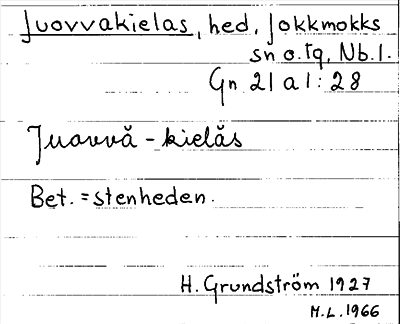 Juovvakielas, hed, Jokkmokks
sn o. tg, Nb. l.
Gn 21 a 1 : 28
Juovvă - kielăs
Bet. = stenheden.
H. Grundström 1927
M.L. 1966